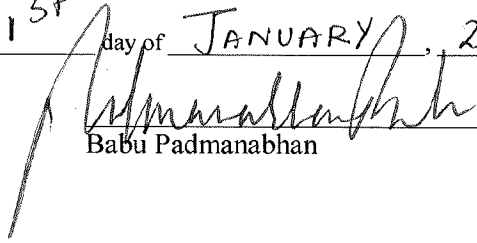 1st day of JANUARY, 2
Babu Padmanabhan